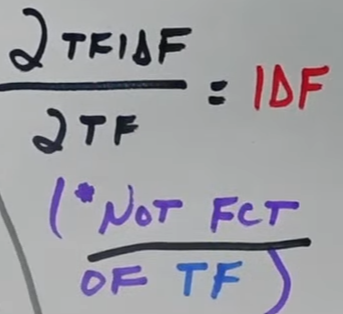 2TFIDF
2TF
= IDF
(*NOT FCT
OF TF)